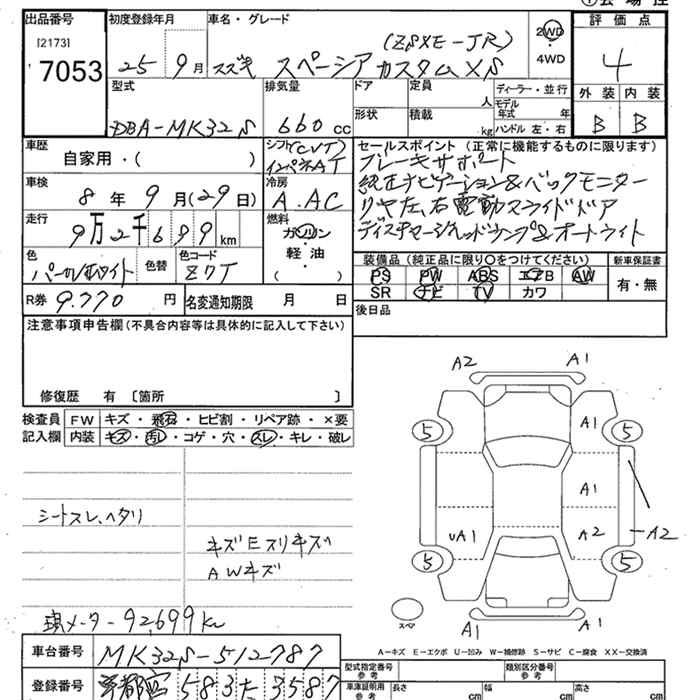 出品番号 初度登録年月 車名・グレード 評価点
[2173]
7053
25 9月 スズキ スペーシアカスタムXS
(ZSXE-JR)
2WD
4WD
4
型式 排気量 ドア 定員 人 ディーラー・並行 外装 内装
形状 積載 kg モデル年式 年
ハンドル 左・右
DBA-MK32S 660cc B B
車歴 シフト(CVT) セールスポイント (正常に機能するものに限ります)
自家用・( ) インパネAT
ブレーキサポート
車検 冷房
8年9月(29日) A.AC
純正ナビゲーション&バックモニター
走行 燃料
9万2千699km ガソリン・軽油・( )
リヤ左、右電動スライドドア
ディスチャージヘッドランプ&オートライト
色 色替 色コード
パールホワイト Z7T
装備品 (純正品に限り○をつけてください) 新車保証書
PS PW ABS エアB AW 有・無
SR ナビ TV カワ
R券 9.770円 名変通知期限 月 日
後日品
注意事項申告欄(不具合内容等は具体的に記入して下さい)
修復歴 有 [箇所 ]
検査員 FW キズ・飛石・ヒビ割・リペア跡・×要
記入欄 内装 キズ・汚レ・コゲ・穴・スレ・キレ・破レ
A2 A1
5 A1 5
A1
UA1 A2 A2
5 5
スペア A1 A1
シートスレ、ヘタリ
キズEスリキズ
AWキズ
現メーター92,699km
A-キズ E-エクボ U-凹み W-補修跡 S-サビ C-腐食 XX-交換済
車台番号 MK32S-512787
型式指定番号 参考 類別区分番号 参考
登録番号 583 た 3587
車庫証明用 参考 長さ cm 幅 cm 高さ cm